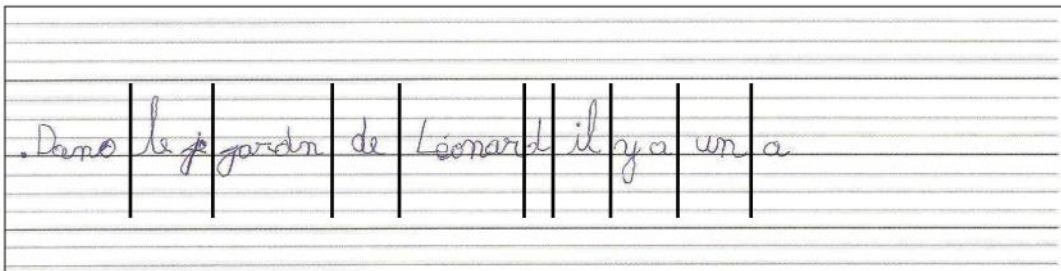 .Dans le je jardin de Léonard il y a un a